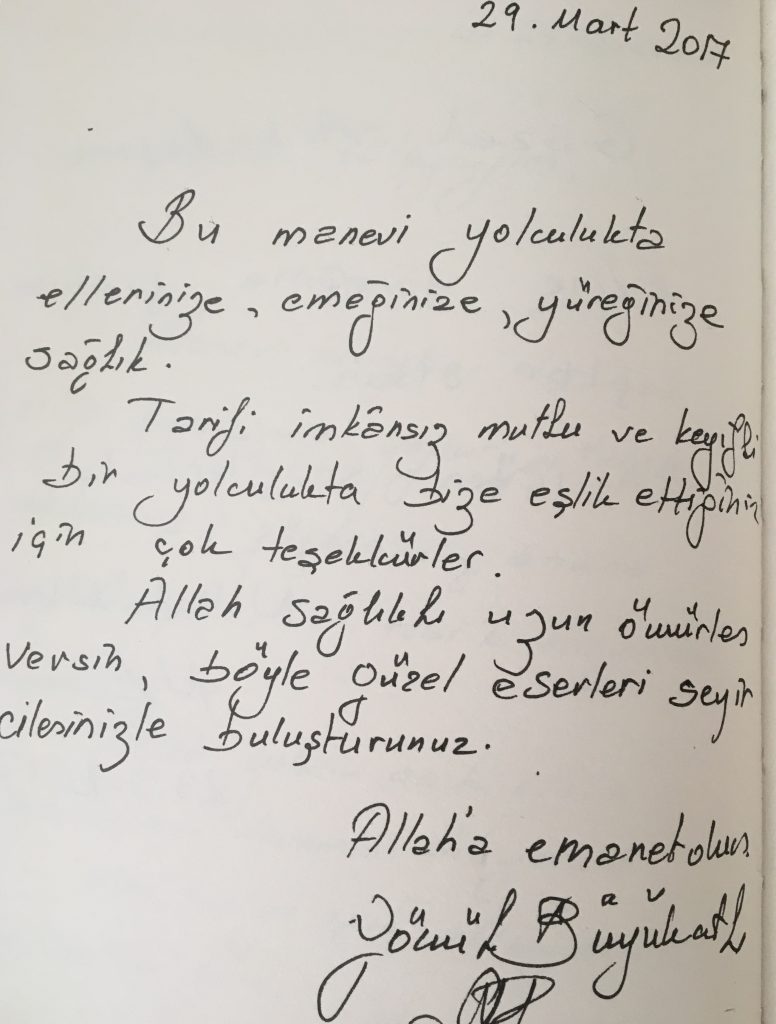 29. Mart 2017
Bu manevi yolculukta
ellerinize, emeğinize, yüreğinize
sağlık.
Tarifi imkânsız mutlu ve keyifli
bir yolculukta bize eşlik ettiğiniz
için çok teşekkürler.
Allah sağlıklı uzun ömürler
versin, böyle güzel eserleri seyir
cilerinizle buluşturunuz.
Allah'a emanet olun.